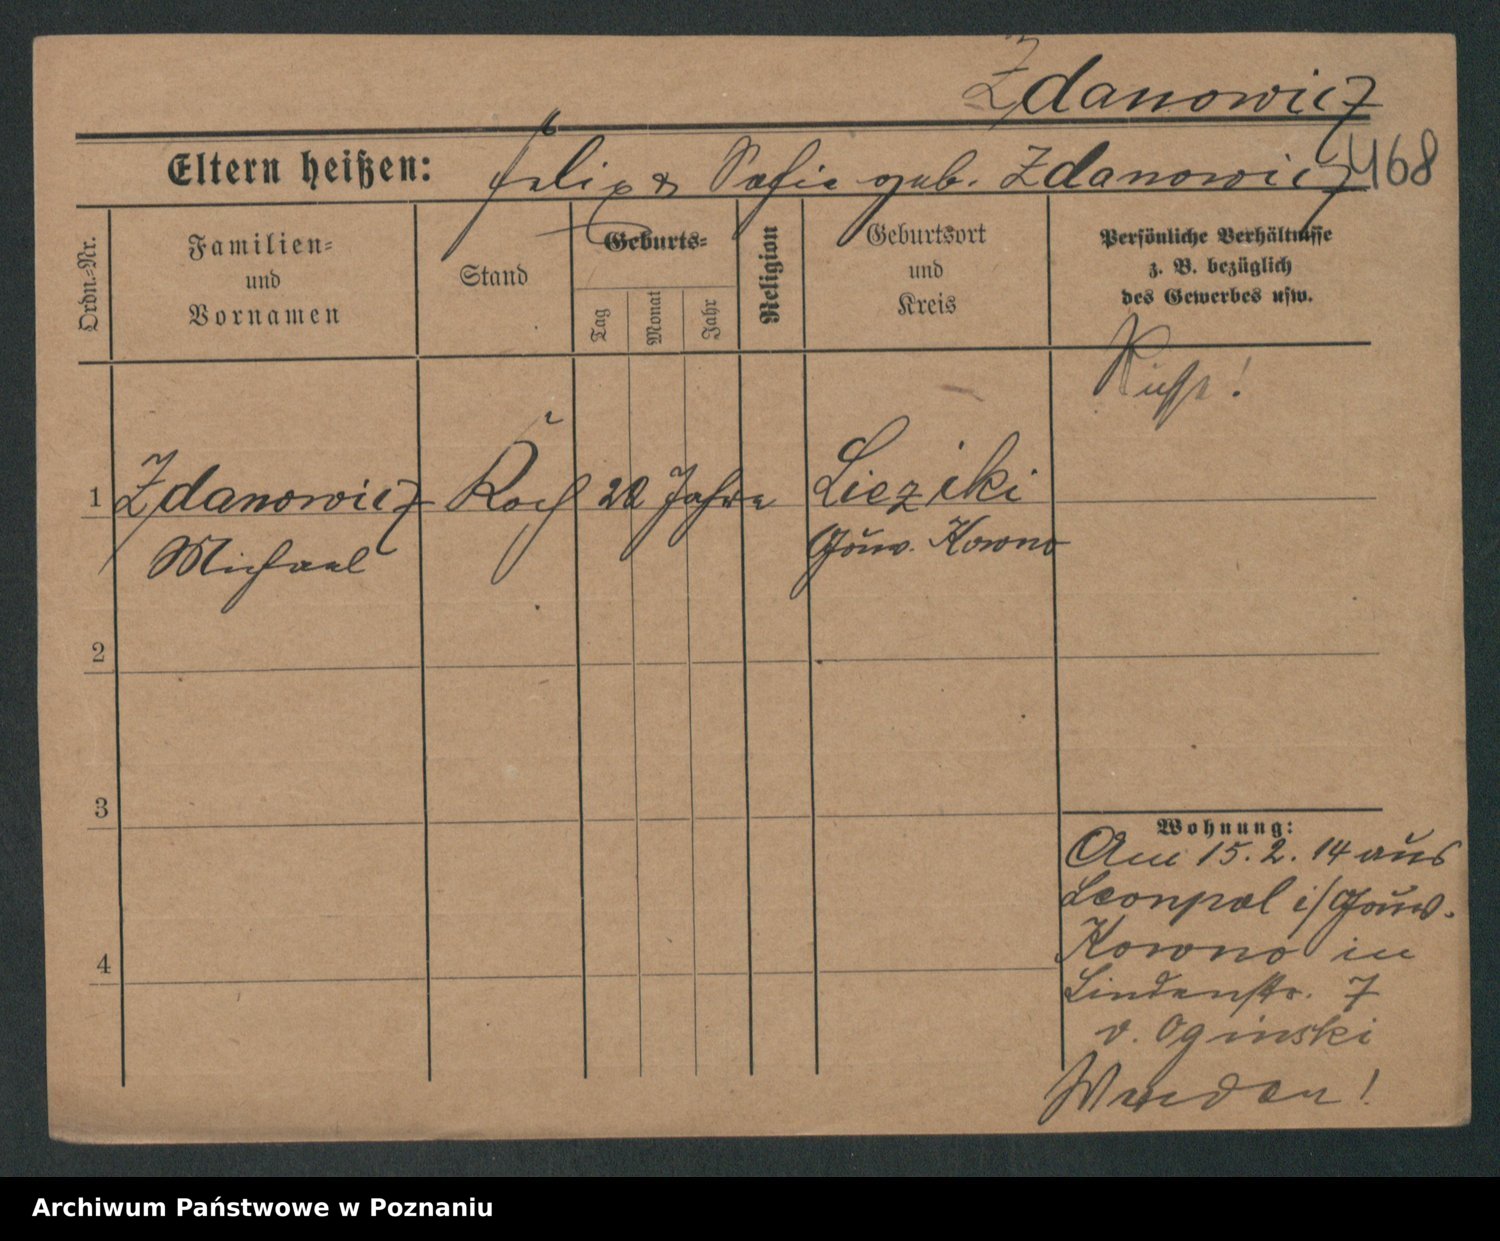 Zdanowicz
Eltern heißen: Felix & Sofie geb. Zdanowicz 468
Ordn.-Nr.
Familien-
und
Vornamen
Stand
Geburts-
Tag
Monat
Jahr
Religion
Geburtsort
und
Kreis
Persönliche Verhältnisse
z. B. bezüglich
des Gewerbes usw.
Russe!
1 Zdanowicz Koch Jahre Lieziki
Michael Gouv. Kowno
2
3
4
Wohnung:
Am 15.2.14 aus
Leonpol i/Gouv.
Kowno in
Lindenstr. 7
v. Oginski
Archiwum Państwowe w Poznaniu